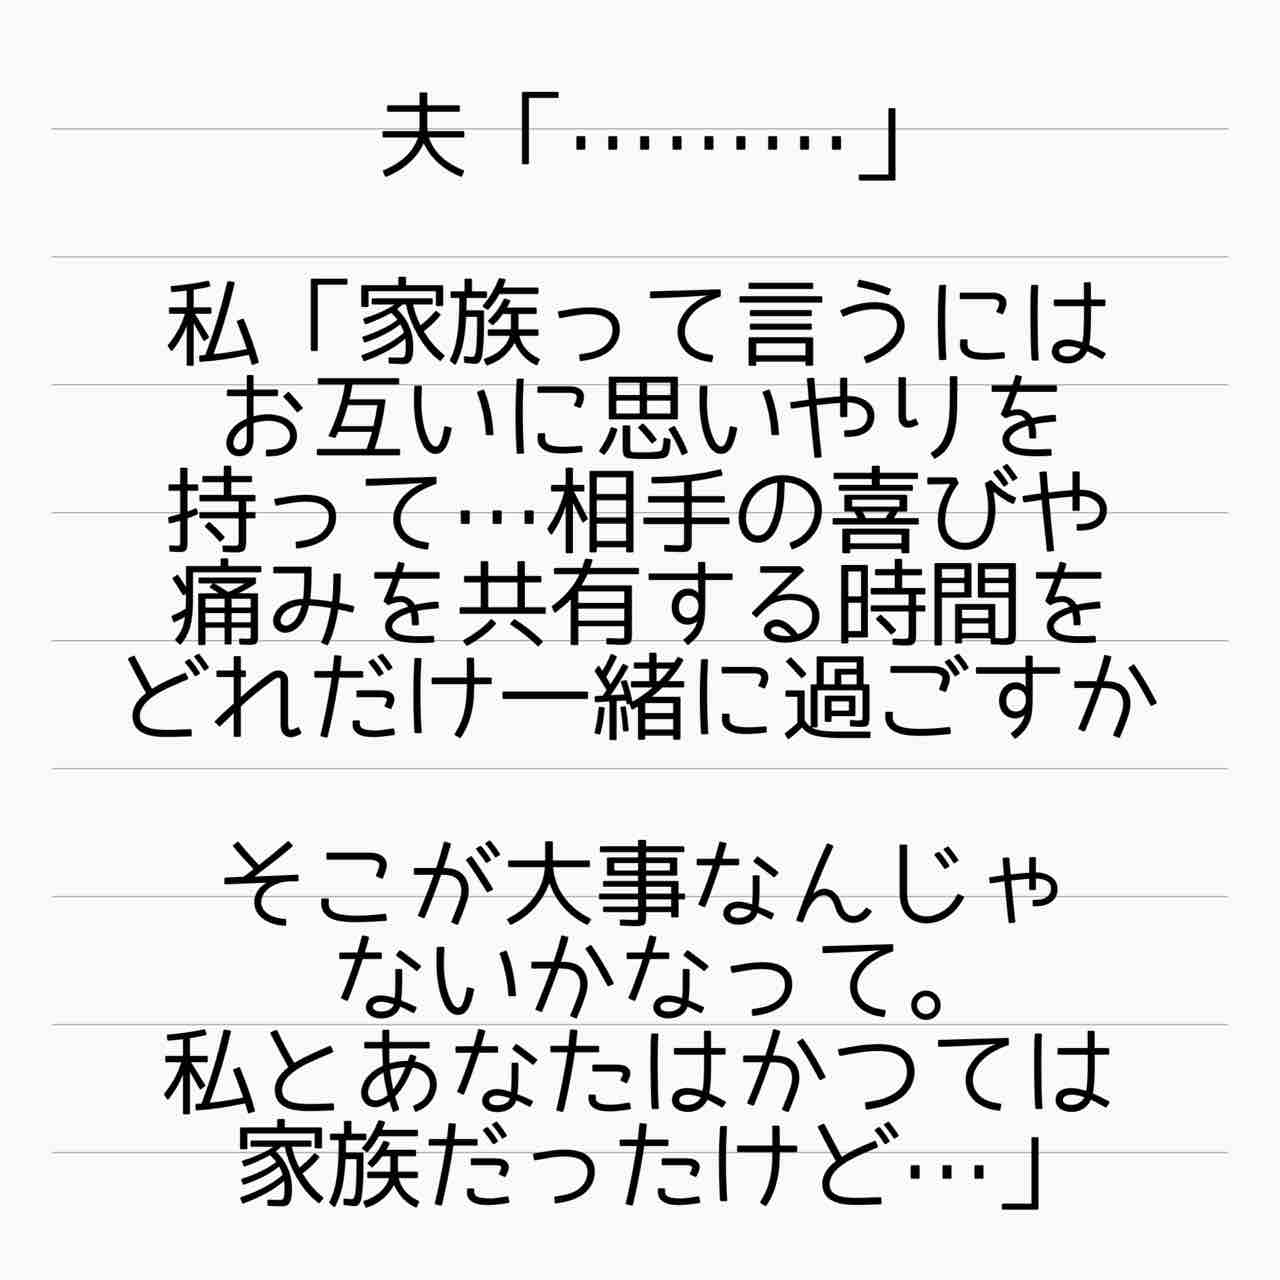 夫「………」
私「家族って言うには
お互いに思いやりを
持って…相手の喜びや
痛みを共有する時間を
どれだけ一緒に過ごすか
そこが大事なんじゃ
ないかなって。
私とあなたはかつては
家族だったけど…」